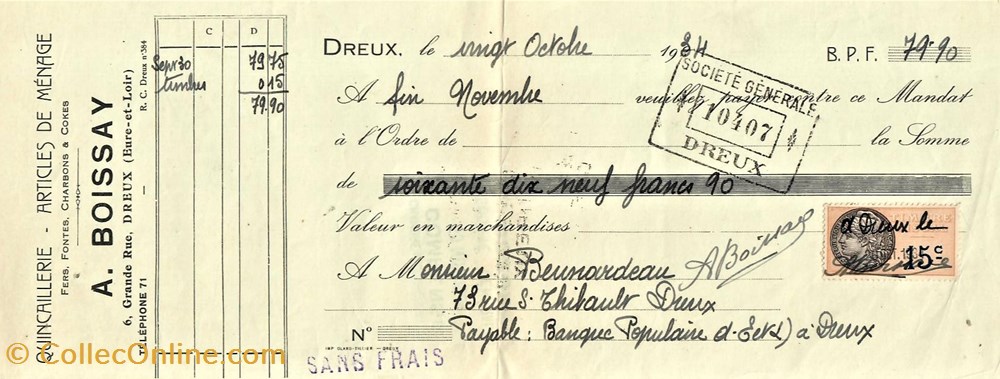 QUINCAILLERIE - ARTICLES DE MÉNAGE
FERS, FONTES, CHARBONS & COKES
A. BOISSAY
6, Grande Rue, DREUX (Eure-et-Loir)
TÉLÉPHONE 71
R. C. Dreux n° 384
C D
Sept 30 79 75
timbre 0 15
79.90
DREUX, le vingt Octobre 1934 B. P. F. 79.90
A fin Novembre veuillez payer contre ce Mandat
à l'Ordre de la Somme
de soixante dix neuf francs 90
Valeur en marchandises
A Monsieur Beunardeau
73 rue St Thibault Dreux
Payable : Banque Populaire d'E et L) à Dreux
N°
SOCIÉTÉ GÉNÉRALE
10407
DREUX
A Boissay
à Dreux le
15c
SANS FRAIS
© CollecOnline.com